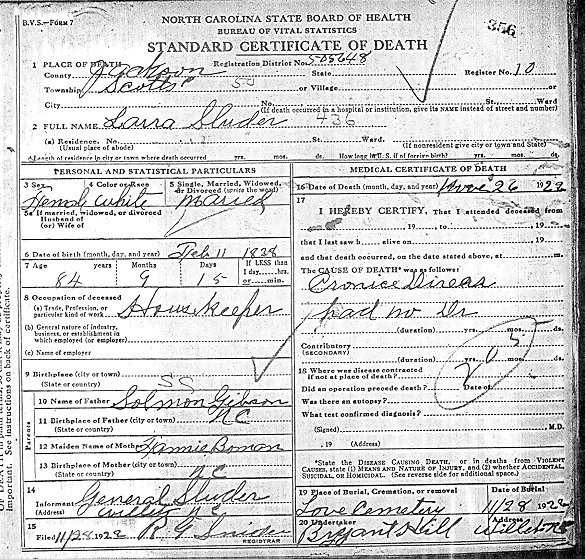 B.V.S.—FORM 7
NORTH CAROLINA STATE BOARD OF HEALTH
BUREAU OF VITAL STATISTICS
STANDARD CERTIFICATE OF DEATH
356
1 PLACE OF DEATH
Registration District No. 505648
County Jackson State Register No. 10
Township Scotts or Village or
City No. St., Ward
(If death occurred in a hospital or institution, give its NAME instead of street and number)
2 FULL NAME Laura Sluder 436
(a) Residence. No. St. Ward.
(Usual place of abode) (If nonresident give city or town and State)
Length of residence in city or town where death occurred yrs. mos. ds. How long in U. S., if of foreign birth? yrs. mos. ds.
PERSONAL AND STATISTICAL PARTICULARS
3 Sex 4 Color or Race 5 Single, Married, Widowed, or Divorced (write the word)
Female White Maried
5a If married, widowed, or divorced
Husband of
(or) Wife of
6 Date of birth (month, day, and year) Feb 11 1838
7 Age years Months Days If LESS than
1 day,......hrs.
or......min.
84 9 15
8 Occupation of deceased
(a) Trade, Profession, or
particular kind of work House Keeper
(b) General nature of industry,
business, or establishment in
which employed (or employer)
(c) Name of employer
9 Birthplace (city or town)
(State or country)
Parents
10 Name of Father Solmon Gibson
11 Birthplace of Father (city or town)
(State or country) NC
12 Maiden Name of Mother Fannie Boman
13 Birthplace of Mother (city or town)
(State or country) NC
14
Informant General Sluder
(Address) Willets NC
15
Filed 11/28 1922 R G Snider
REGISTRAR
MEDICAL CERTIFICATE OF DEATH
16 Date of Death (month, day, and year) Nove 26 1922
17
I HEREBY CERTIFY, That I attended deceased from
, 19 , to , 19
that I last saw h alive on , 19
and that death occurred, on the date stated above, at m.
The CAUSE OF DEATH* was as follows:
Cronice Direas
had no Dr
(duration) yrs. mos. ds.
Contributory
(SECONDARY)
(duration) yrs. mos. ds.
205
18 Where was disease contracted
if not at place of death?
Did an operation precede death? Date of
Was there an autopsy?
What test confirmed diagnosis?
(Signed) M.D.
, 19 (Address)
*State the DISEASE CAUSING DEATH, or in deaths from VIOLENT
CAUSES, state (1) MEANS AND NATURE OF INJURY, and (2) whether ACCIDENTAL,
SUICIDAL, or HOMICIDAL. (See reverse side for additional space).
19 Place of Burial, Cremation, or removal Date of Burial
Love Cemetery 11/28 1922
20 Undertaker Address
Bryant Hill Willets NC
important. See instructions on back of certificate.